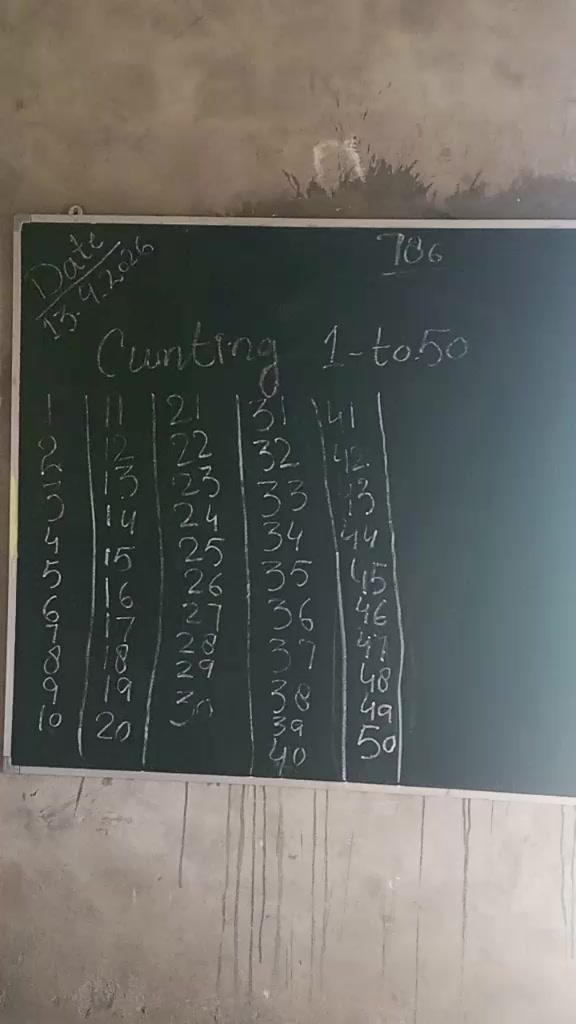 Date
13.4.2026
786
Cunting 1-to.50
1 11 21 31 41
2 12 22 32 42
3 13 23 33 43
4 14 24 34 44
5 15 25 35 45
6 16 26 36 46
7 17 27 37 47
8 18 28 38 48
9 19 29 39 49
10 20 30 40 50